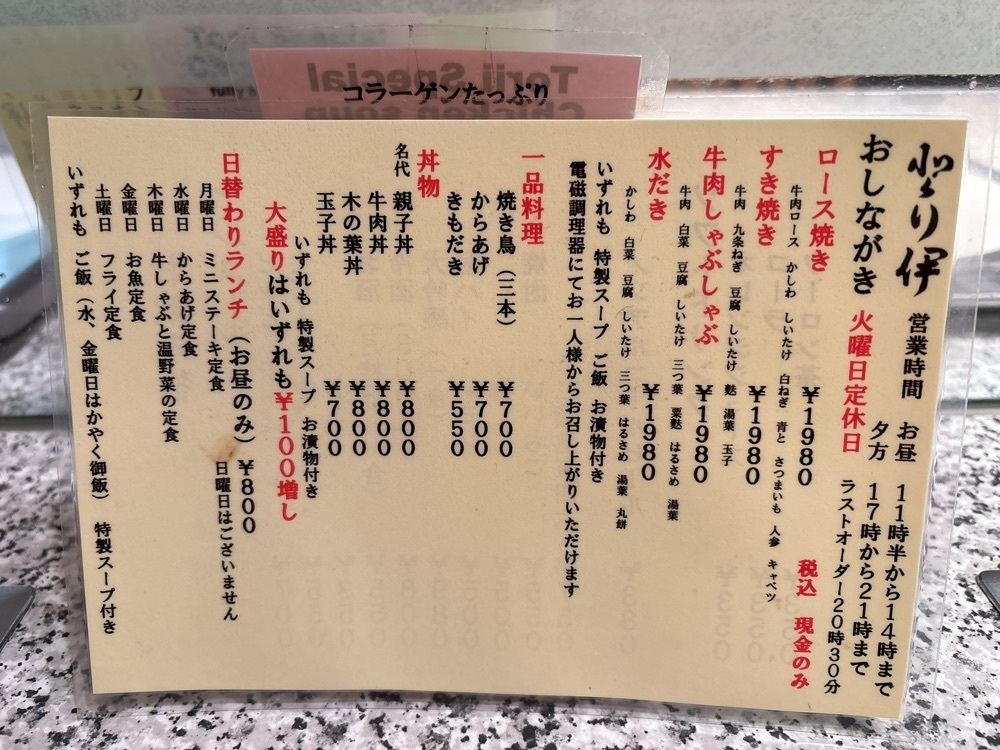 コラーゲンたっぷり
とり伊
おしながき
営業時間 お昼 11時半から14時まで
夕方 17時から21時まで
火曜日定休日
ラストオーダー20時30分
税込 現金のみ
ロース焼き ¥1980
牛肉ロース かしわ しいたけ 白ねぎ 青と さつまいも 人参 キャベツ
すき焼き ¥1980
牛肉 九条ねぎ 豆腐 しいたけ 麩 湯葉 玉子
牛肉しゃぶしゃぶ ¥1980
牛肉 白菜 豆腐 しいたけ 三つ葉 粟麩 はるさめ 湯葉
水だき ¥1980
かしわ 白菜 豆腐 しいたけ 三つ葉 はるさめ 湯葉 丸餅
いずれも 特製スープ ご飯 お漬物付き
電磁調理器にてお一人様からお召し上がりいただけます
一品料理
焼き鳥(三本) ¥700
からあげ ¥700
きもだき ¥550
丼物
名代 親子丼 ¥800
牛肉丼 ¥800
木の葉丼 ¥800
玉子丼 ¥700
いずれも 特製スープ お漬物付き
大盛りはいずれも¥100増し
日替わりランチ(お昼のみ) ¥800
日曜日はございません
月曜日 ミニステーキ定食
水曜日 からあげ定食
木曜日 牛しゃぶと温野菜の定食
金曜日 お魚定食
土曜日 フライ定食
いずれも ご飯(水、金曜日はかやく御飯) 特製スープ付き